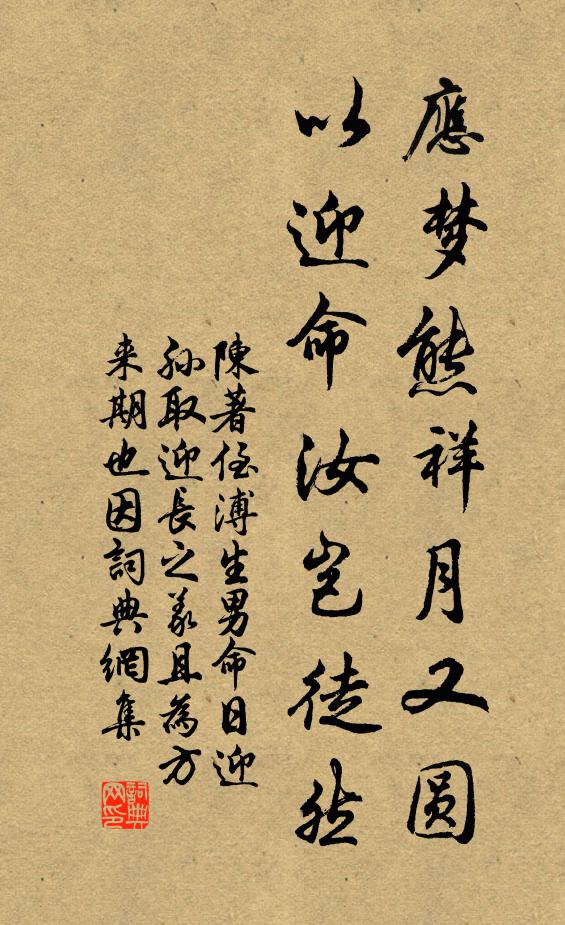 應梦熊祥月又圓
以迎命汝岂徒然
陳著侄溥生男命日迎
孙取迎長之義且為方
来期也因詞典網集
詞典网印